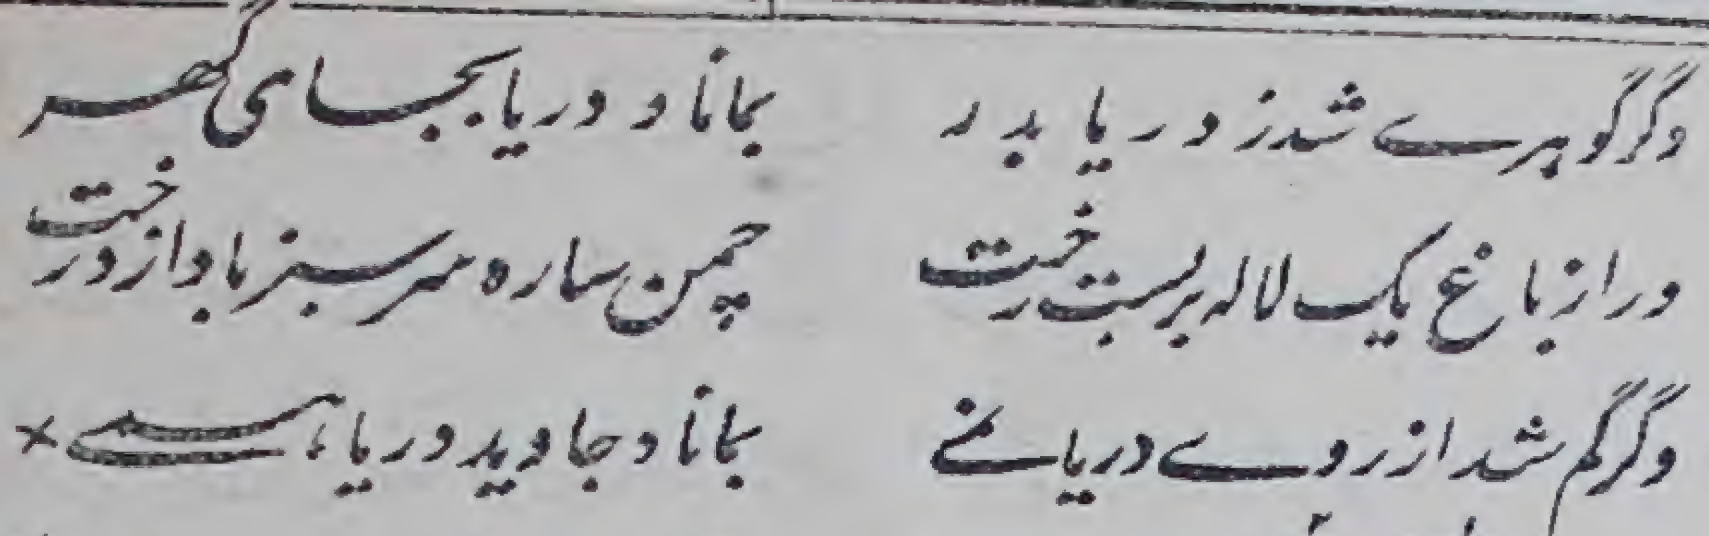 وگر گوہرے شد ز دریا بدر بماناد دریا بجای گھر
ور از باغ یک لالہ بربست رخت چمن سارہ سرسبز باد از درخت
وگر گم شد از روے دریا نمے بماناد جاوید دریا ہمے ×